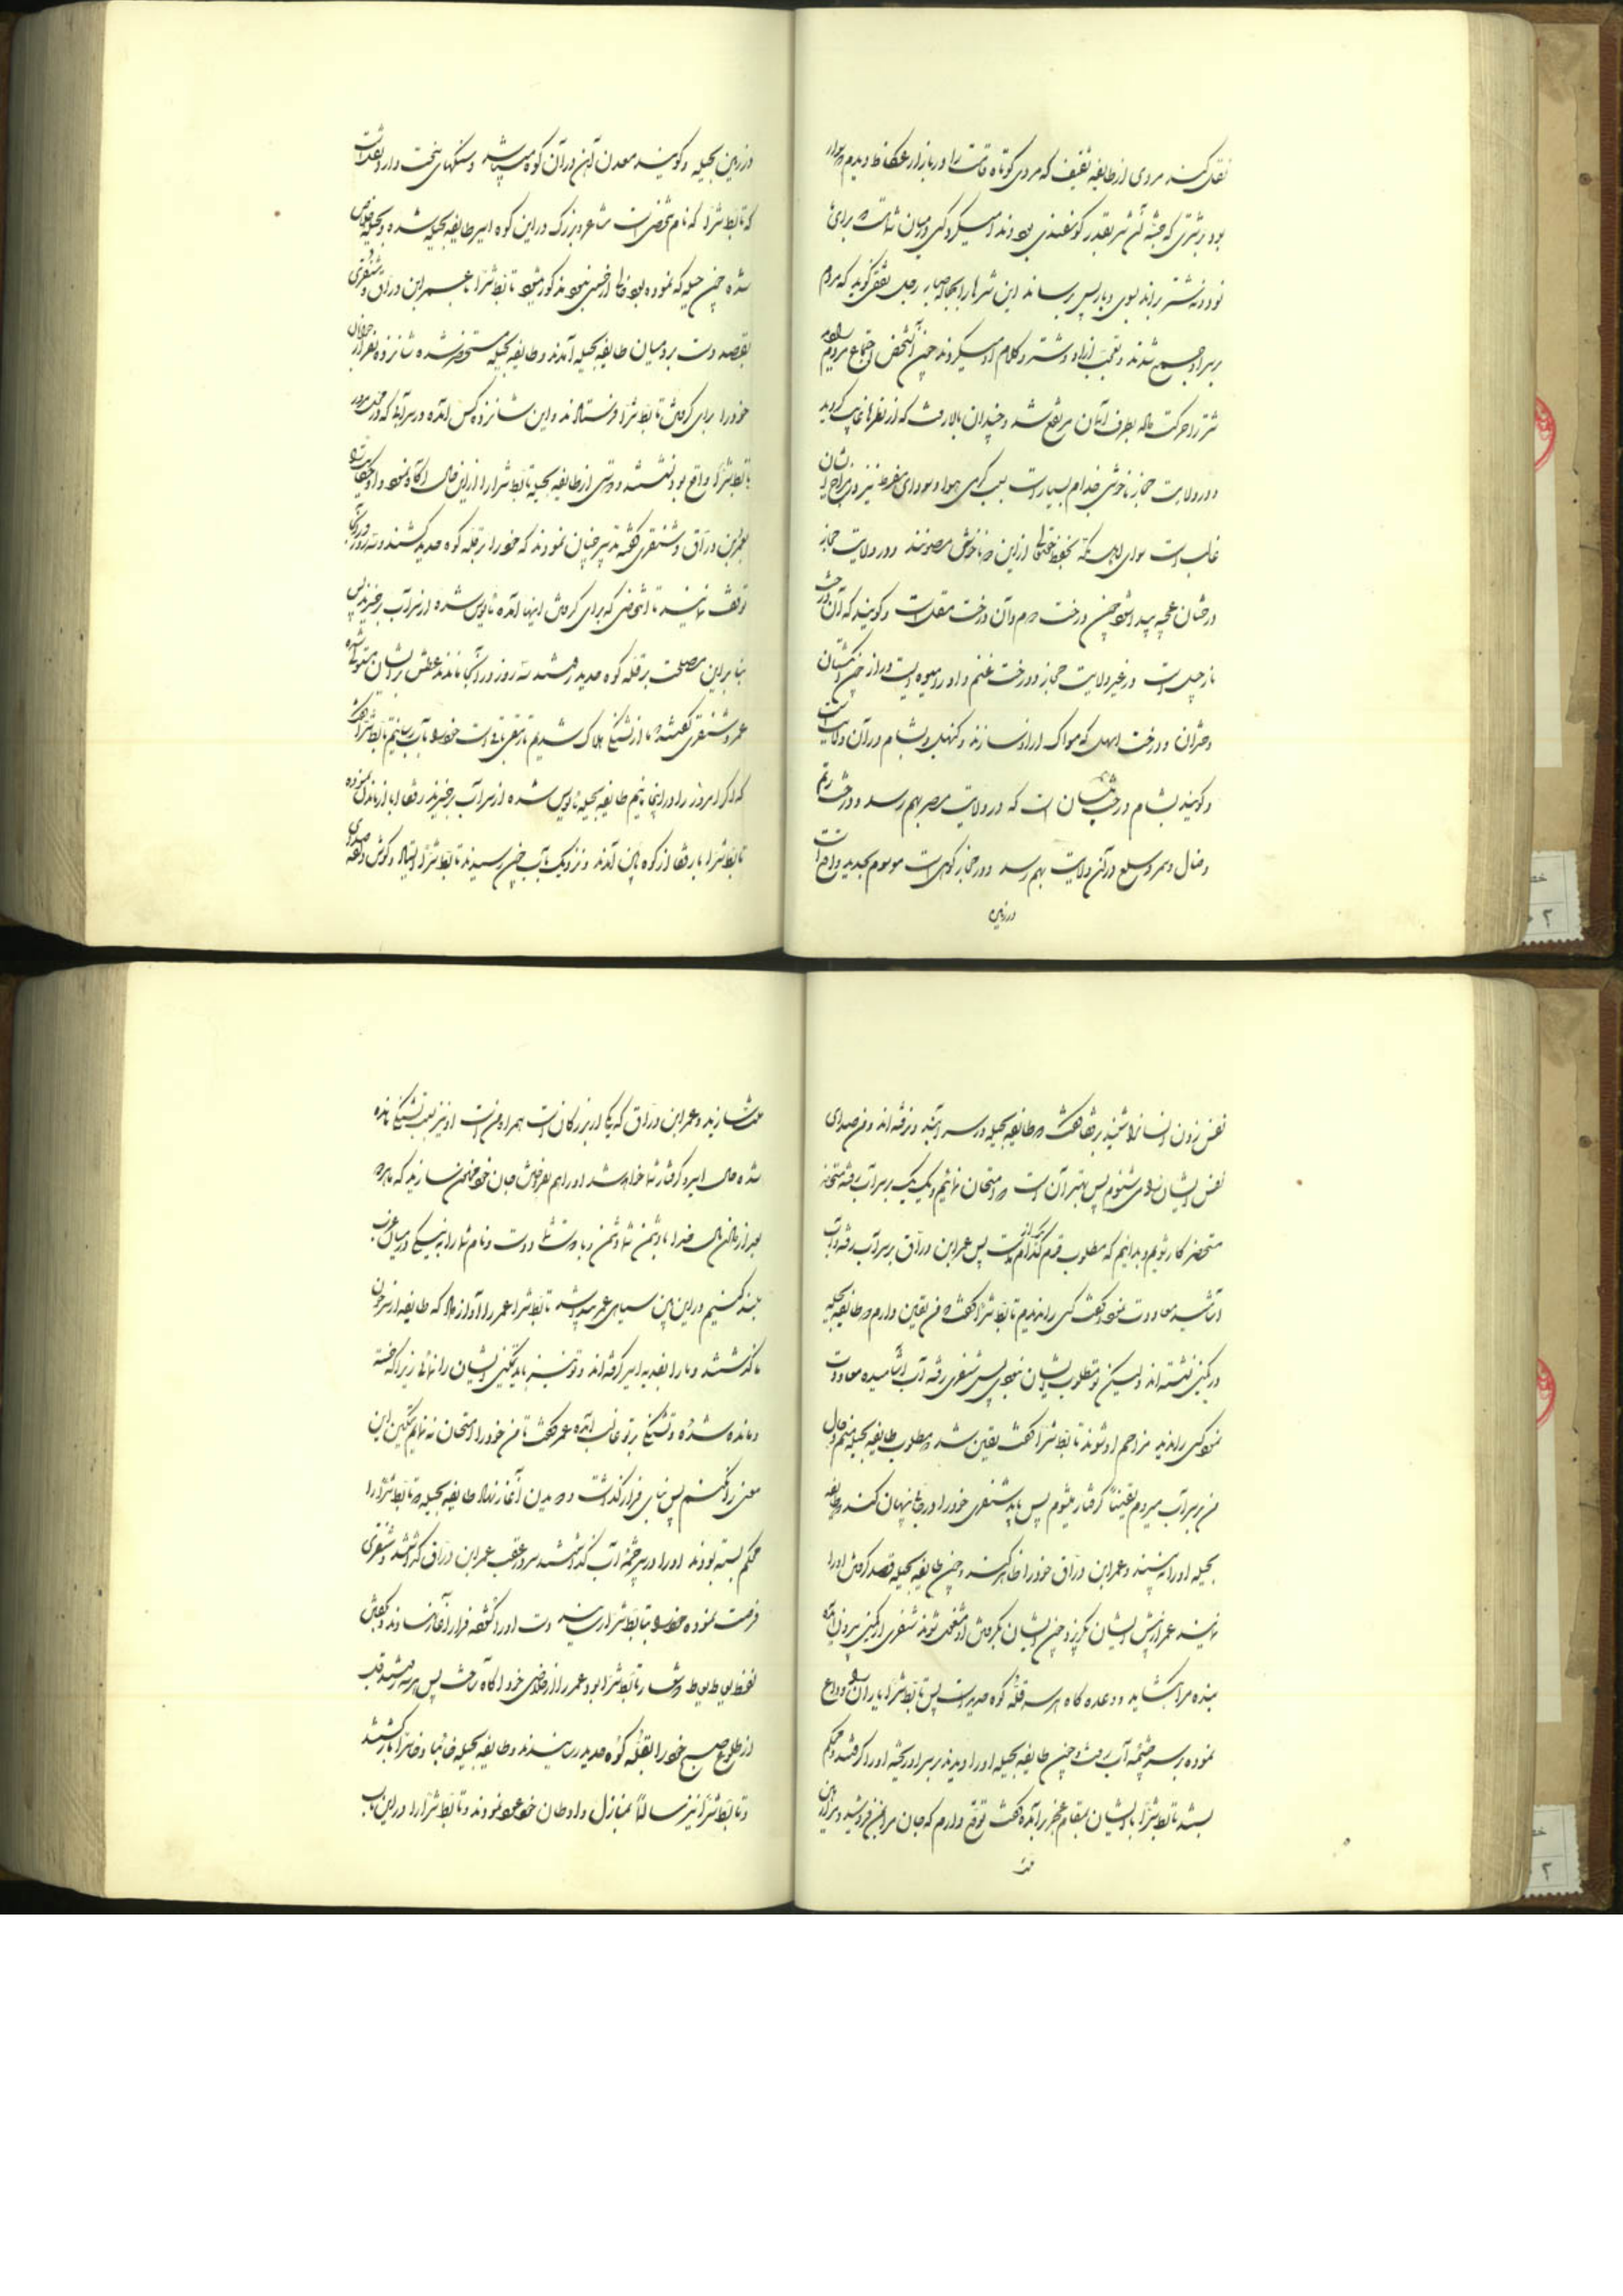 نقل کنند مردی از طایفه ثقیف که مردی کوتاه قامت را در بازار عکاظ دیدم سوار
بود بر شتری که جثه آن شتر بقدر کوسفندی بود و ندا میکرد کسی در میان شما هست که برای ما
نود و نه شتر براند بسوی وبار پس برساند این شترها را بجبابره وبار رجل ثقفی کوید که مردم
بر سر او جمع شدند و تعجب از او و شتر و کلام او میکردند چون آنشخص اجتماع مردم
شتر را حرکت داده بطرف آسمان مرتفع شد و چندان بالا رفت که از نظرها غایب کردید
و در ولایت حجاز ناخوشی جذام بسیار است بسبب کرمی هوا و سودای مفرط نیز در مزاج ایشان
غالب است سوای اهل مکه بحفظ خدایتعالی از این ناخوشی مصونند و در ولایت حجاز
درختان عجیبه پیدا شود چون درخت دوم و آن درخت مقل است و کویند که آن درخت
نارجیل است در غیر ولایت حجاز و درخت عنم و او را میوه ایست دراز چون انکشتان
دختران و درخت اسحل که مسواک از او سازند و کنهبل و بشام در آن ولایت است
و کویند بشام درخت بلسان است که در ولایت مصر بهم رسد و درخت رتم
و ضال و سمر و سلع در آن ولایت بهم رسد و در حجاز کوهی است موسوم بحدید واقع است
در زمین
در زمین بجیله و کویند معدن آهن در آن کوه میباشد و سنکهای سخت دارد
که تابط شرا که نام شخصی است شاعر و بزرک در این کوه اسیر طایفه بجیله شده و بحیله خلاص
شده چون حیله که نموده بود خالی از حسنی نبود مذکور میشود تابط شرا با عمر ابن دراق و شنفری
بقصد دست برد میان طایفه بجیله آمدند و طایفه بجیله مستحضر شده شانزده نفر از جوانان
خود را برای کرفتن تابط شرا فرستادند و این شانزده کس آمده در سر آبها که در محل مرور
تابط شرا واقع بود نشستند و دوستی از طایفه بجیله تابط شرا را از این حال آکاه نمود
بعمر ابن دراق و شنفری کفته تدبیر چنان نمودند که خود را بر قله کوه حدید کشند و سه روز در آنجا
توقف نمایند تا اشخاصی که برای کرفتن اینها آمده مایوس شده از سر آب برخیزند پس
بنا بر این مصلحت بر قله کوه حدید رفتند سه روز در آنجا ماندند عطش بر ایشان مستولی شده
عمر و شنفری کفتند ما از تشنکی هلاک شدیم تا رمقی باقی است خود را بآب رسانیم تابط شرا کفت
که اکر امروز را در اینجا مانیم طایفه بجیله مایوس شده از سر آب برخیزند رفقا ابا از ماندن نموده
تابط شرا با رفقا از کوه پائین آمدند و نزدیک بآب چون رسیدند تابط شرا ایستاد و کوش داد صدای
نفس زدن انسانرا شنید برفقا کفت که طایفه بجیله در سر آبند و نرفته اند و من صدای
نفس ایشان را می شنوم پس بهتر آن است که امتحان نمائیم و یک یک بر سر آب رفته
مستحضر کار شویم و بدانیم که مطلوب قوم کدام یک از ماست پس عمر ابن دراق بر سر آب رفته و آب
آشامید معاودت نمود کفت کسی را ندیدم تابط شرا کفت که من یقین دارم که طایفه بجیله
در کمین نشسته اند و لیکن تو مطلوب ایشان نبودی پس شنفری رفته آب آشامیده معاودت
نمود کسی را ندید مزاحم او شوند تابط شرا کفت یقین شد که مطلوب طایفه بجیله منم و حال
من بر سر آب میروم یقینا کرفتار میشوم پس باید شنفری خود را در جائی پنهان کند که طایفه
بجیله او را نبینند و عمر ابن دراق خود را ظاهر کند و چون طایفه بجیله قصد کرفتن او را
نمایند عمر از پیش ایشان بکریزد و چون ایشان بکرفتن او مشغول شوند شنفری از کمین بیرون آمده
بند مرا بکشاید و وعده کاه هر سه قله کوه حدید است پس تابط شرا یاران را وداع
نموده بر سر چشمه آب رفت و چون طایفه بجیله او را دیدند بر سر او ریخته او را کرفتند و محکم
بستند تابط شرا با ایشان بمقام عجز برآمده کفت توقع دارم که جان مرا بمن فروشید و مرا از این
منت
منت سازید و عمر ابن دراق که یکی از بزرکان است همراه من است او نیز بسبب تشنکی مانده
شده حال اسیر و کرفتار شما خواهد شد او را هم بعوض جان خود ضامن سازید که ما هر دو
بعد از دادن مال فدا با دشمن شما دشمن و با دوست شما دوست و نام شما را به نیکی در میان عرب
بلند کنیم در این بین سیاهی عمر پیدا شد تابط شرا عمر را آواز داد که طایفه از سر خون
ما کذشتند و ما را بفدیه اسیر کرفته اند و تو نیز باید تمکین ایشان را نمائی زیرا که خسته
و مانده شده و تشنکی بر تو غالب آمده عمر کفت تا من خود را امتحان ننمایم تمکین این
معنی را نکنم پس بنای فرار کذاشت و دویدن آغاز نهاد طایفه بجیله که تابط شرا را
محکم بسته بودند او را در سر چشمه آب کذاشتند سر در عقب عمر ابن دراق کذاشتند و شنفری
فرصت نموده خود را بتابط شرا رسانید دست او را کشوده فرار آغاز ساختند و بکفتن
لفظ یعیاط یعیاط که شعار تابط شرا بود عمر را از خلاصی خود آکاه ساخت پس هر سه رفتند قبل
از طلوع صبح خود را بقله کوه حدید رسانیدند و طایفه بجیله خائبا و خاسرا باز کشتند
و تابط شرا نیز سالما بمنازل و اوطان خود عود نمودند و تابط شرا را در این باب